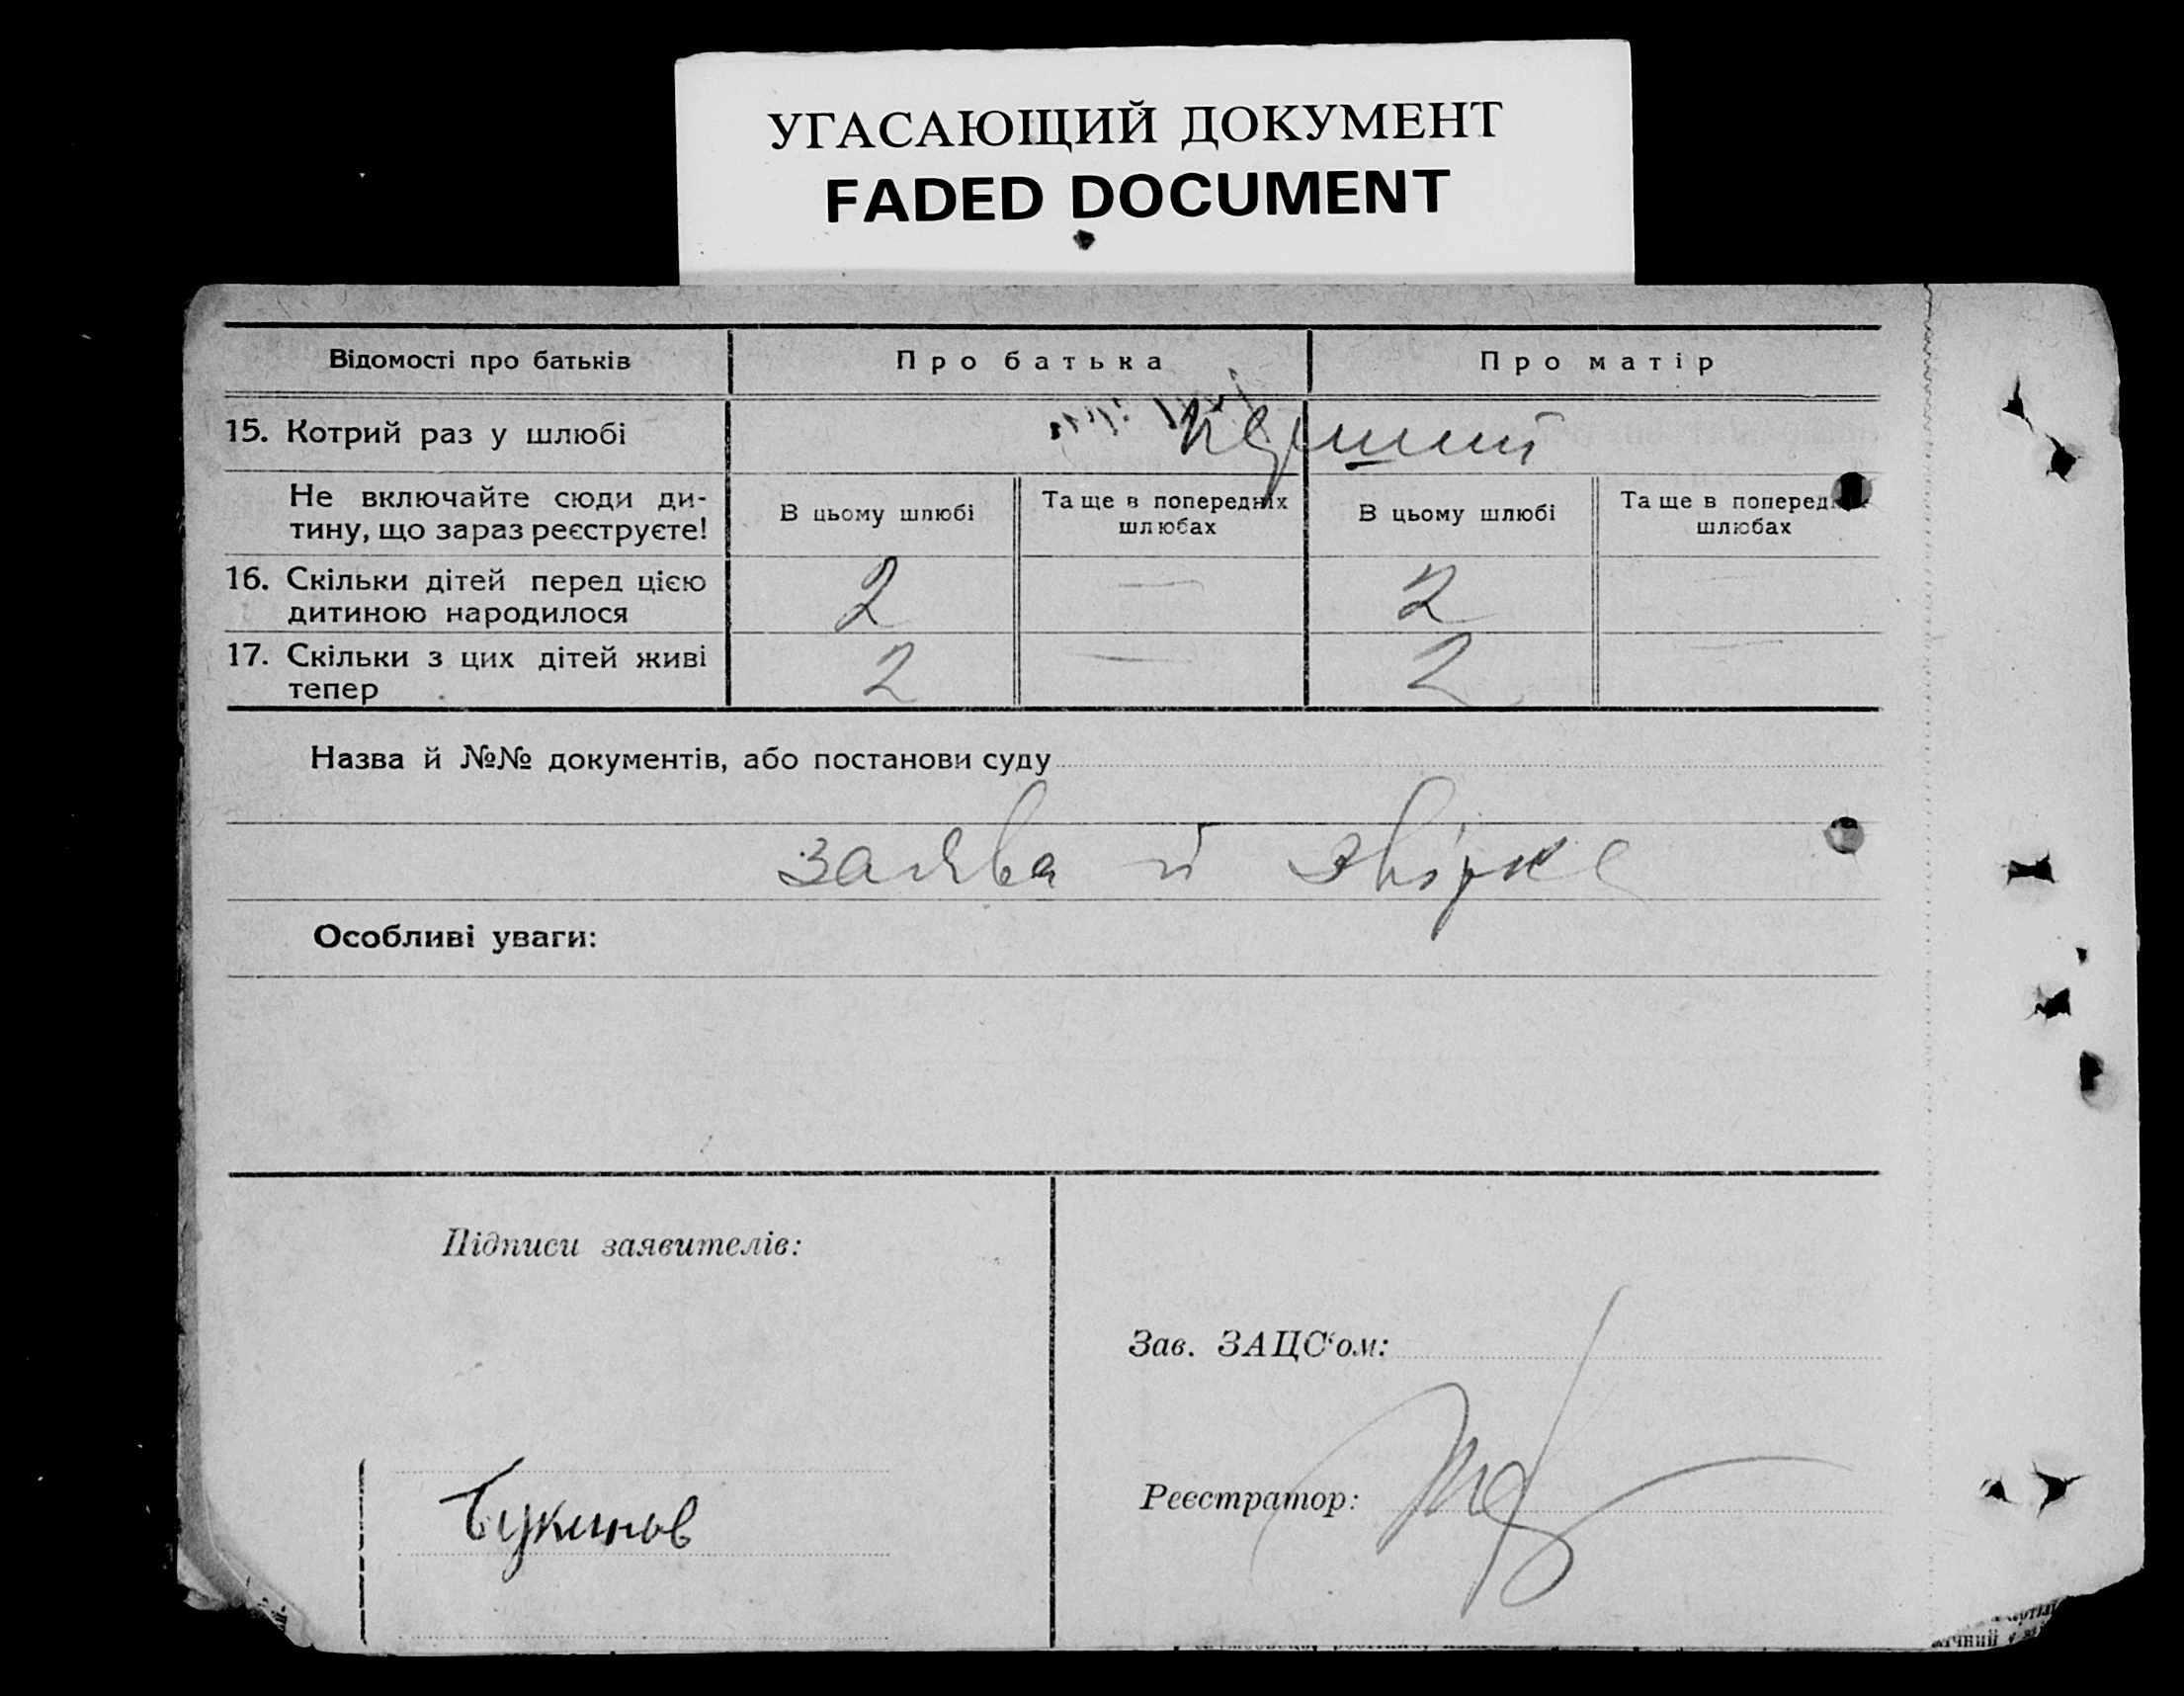 УГАСАЮЩИЙ ДОКУМЕНТ
FADED DOCUMENT
Відомості про батьків Про батька Про матір
15. Котрий раз у шлюбі перший
Не включайте сюди ди-
тину, що зараз реєструєте!
В цьому шлюбі Та ще в попередніх
шлюбах
В цьому шлюбі Та ще в поперед
шлюбах
16. Скільки дітей перед цією
дитиною народилося
2 — 2 —
17. Скільки з цих дітей живі
тепер
2 — 2 —
Назва й №№ документів, або постанови суду
заява й звірка
Особливі уваги:
Підписи заявителів:
Зав. ЗАЦС‘ом:
Реєстратор:
Букинов